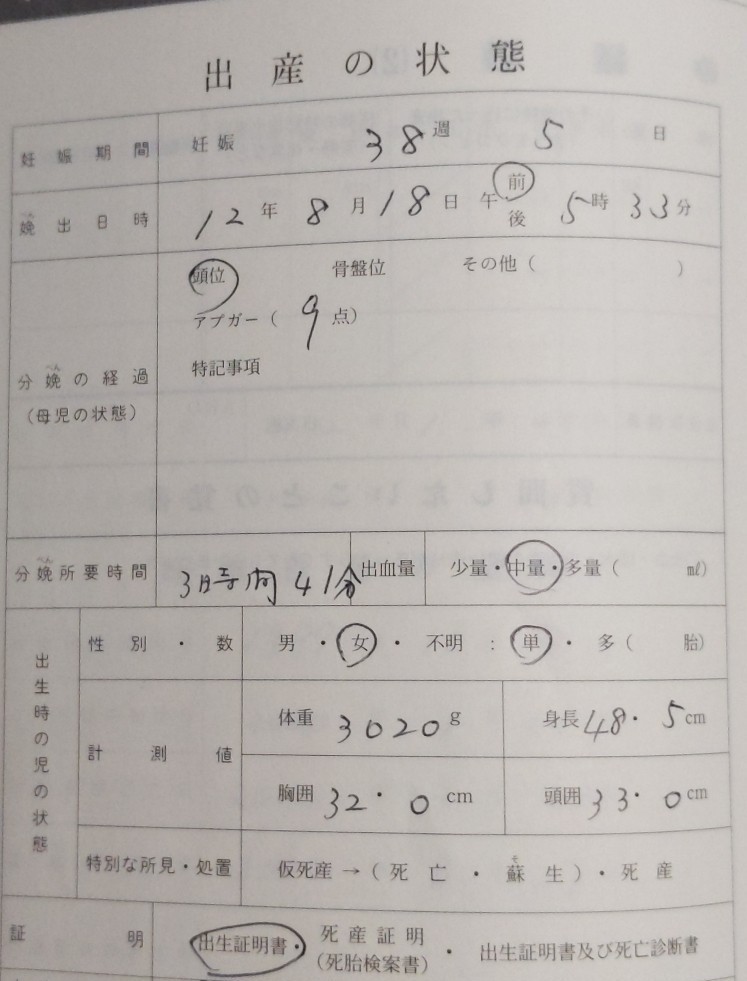 出産の状態
妊娠期間 妊娠 38週 5日
娩出日時 12年 8月18日 午前後 5時33分
べん
頭位 骨盤位 その他( )
アプガー( 9点)
特記事項
分娩の経過
べん
(母児の状態)
分娩所要時間 3時間41分 出血量 少量・中量・多量( ㎖)
べん
出生時の児の状態
性別・数 男・女・不明:単・多( 胎)
計測値 体重 3020g 身長48.5cm
胸囲 32.0cm 頭囲33.0cm
特別な所見・処置 仮死産→(死亡・蘇生)・死産
そ
証明 出生証明書・死産証明(死胎検案書)・出生証明書及び死亡診断書